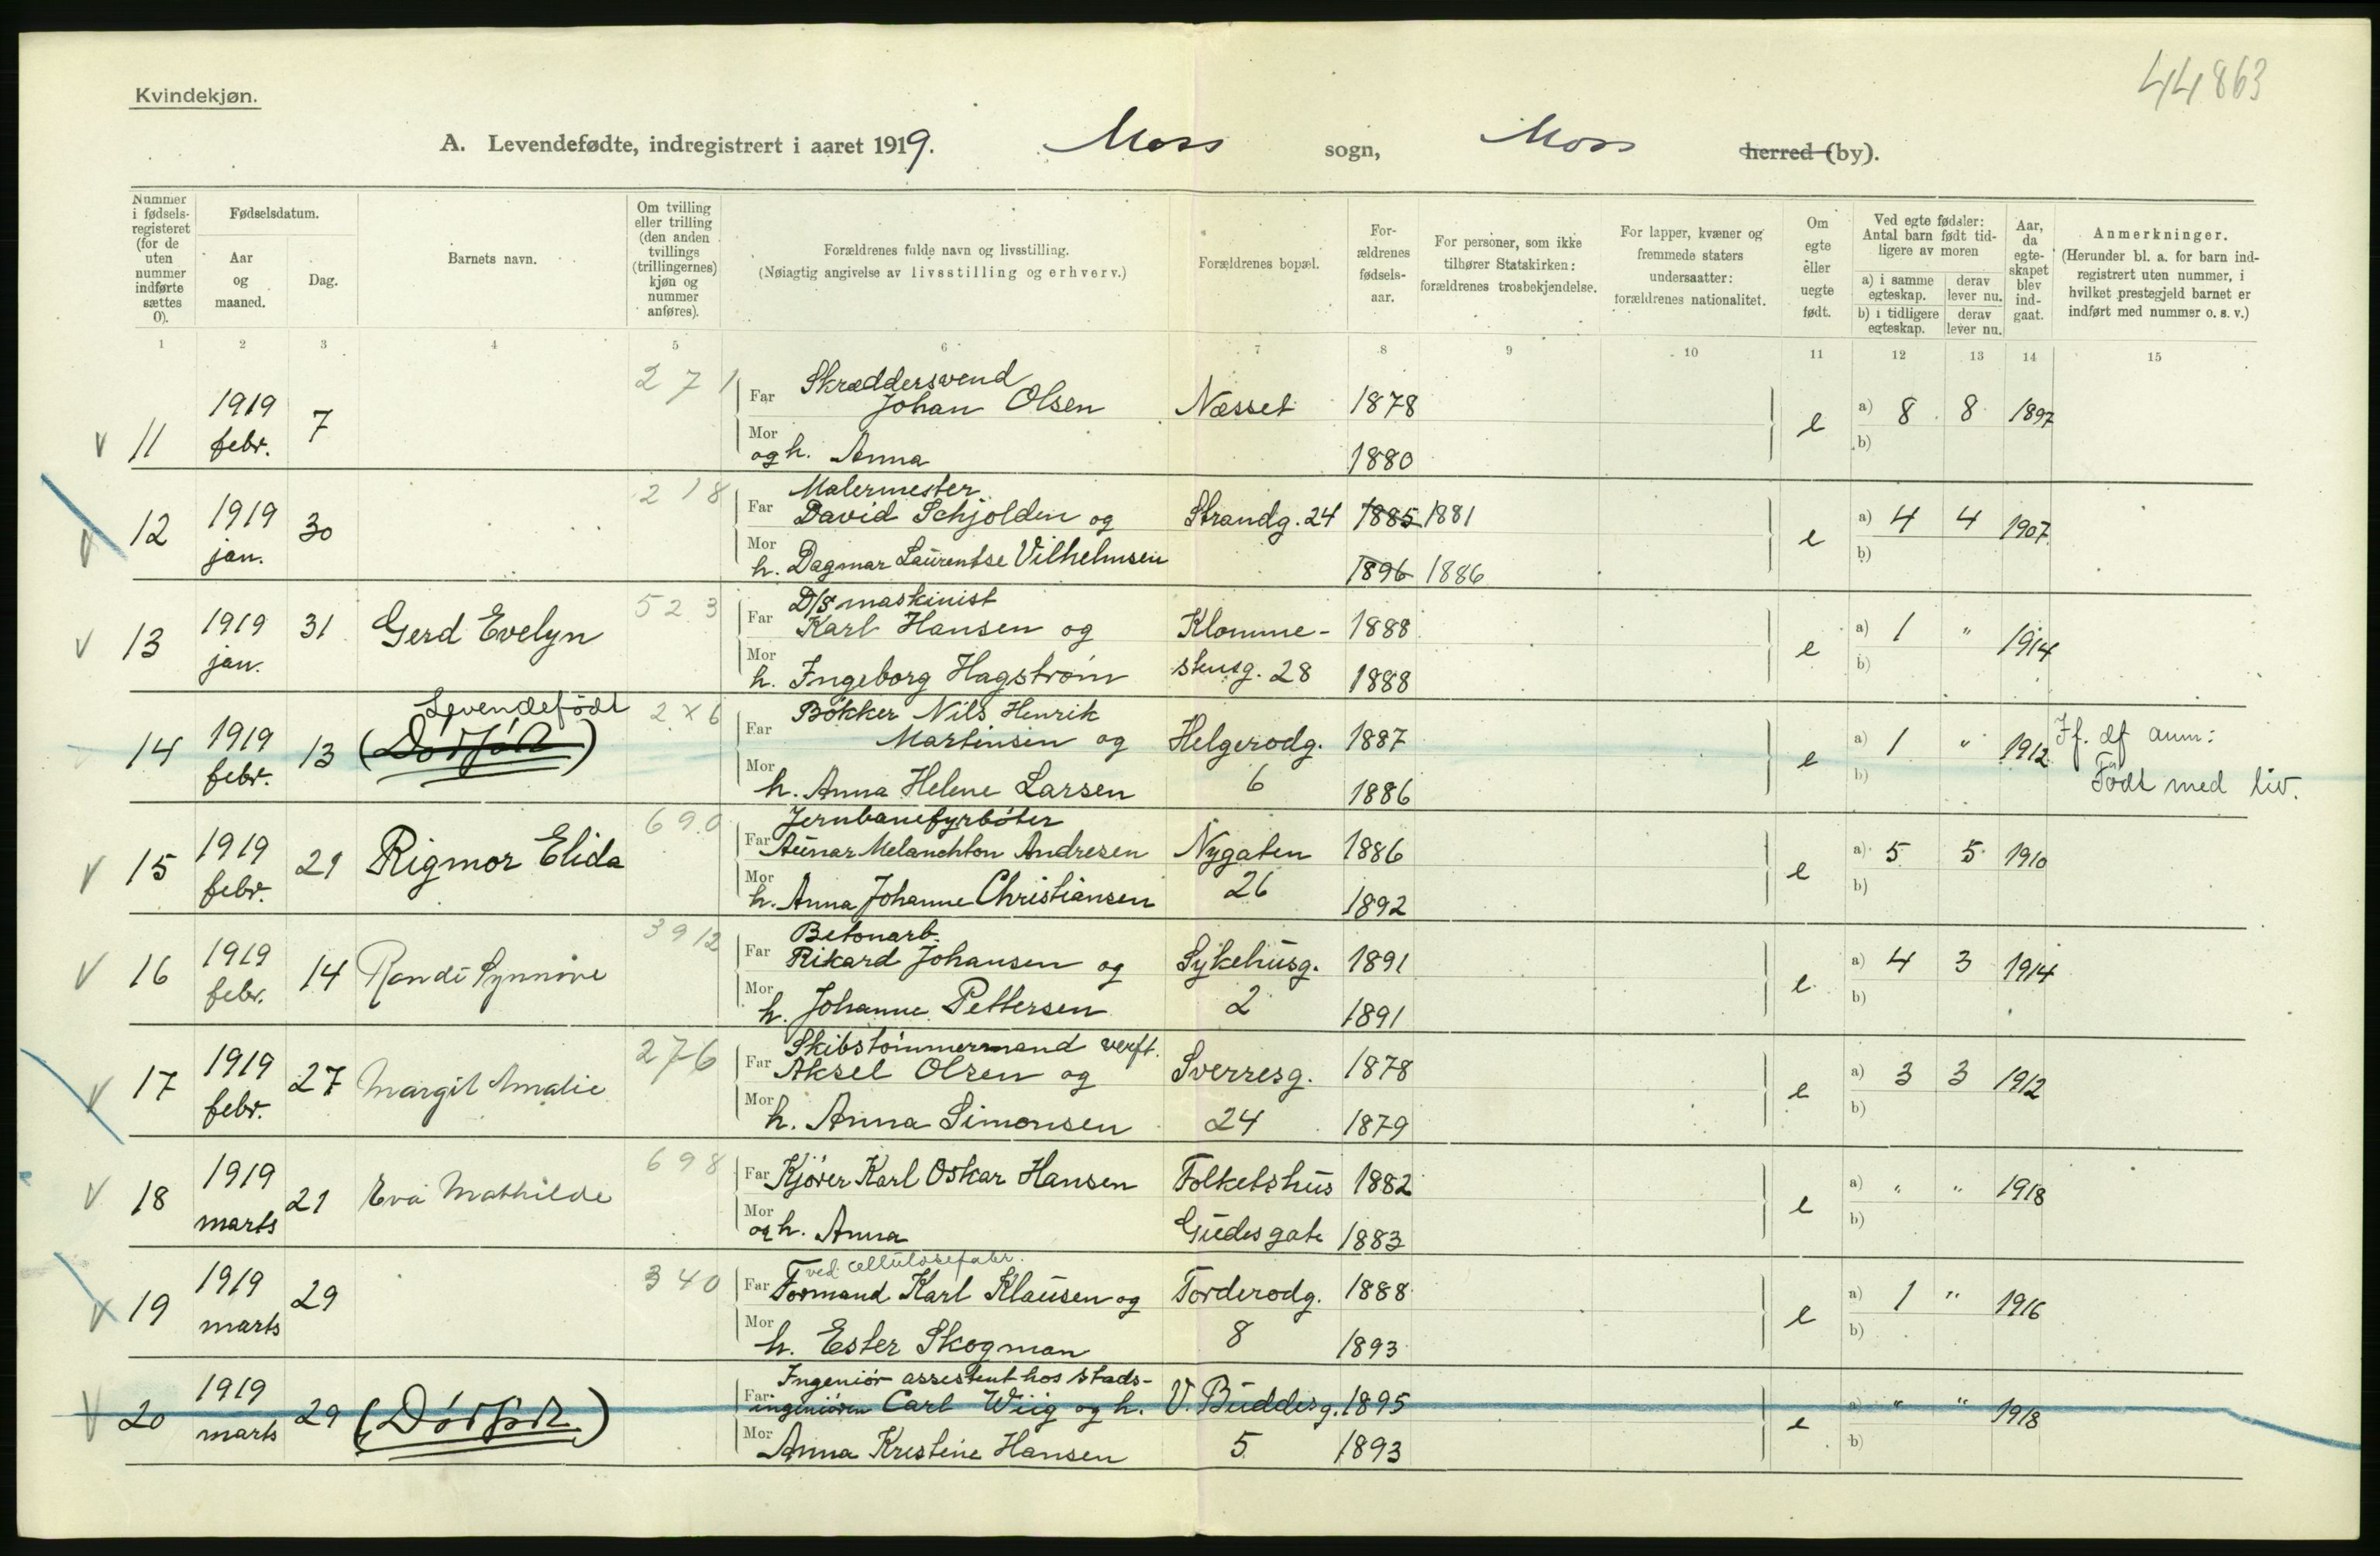 44863
Kvindekjøn.
A. Levendefødte, indregistrert i aaret 1919. Moss sogn, Moss herred (by).
Nummer i fødselsregisteret (for de uten nummer indførte sættes 0).
Fødselsdatum.
Aar og maaned.
Dag.
Barnets navn.
Om tvilling eller trilling (den anden tvillings (trillingernes) kjøn og nummer anføres).
Forældrenes fulde navn og livsstilling.
(Nøiagtig angivelse av livsstilling og erhverv.)
Forældrenes bopæl.
Forældrenes fødselsaar.
For personer, som ikke tilhører Statskirken: forældrenes trosbekjendelse.
For lapper, kvæner og fremmede staters undersaatter: forældrenes nationalitet.
Om egte eller uegte født.
Ved egte fødsler: Antal barn født tidligere av moren
a) i samme egteskap. derav lever nu.
b) i tidligere egteskap. derav lever nu.
Aar, da egteskapet blev indgaat.
Anmerkninger.
(Herunder bl. a. for barn indregistrert uten nummer, i hvilket prestegjeld barnet er indført med nummer o. s. v.)
1 2 3 4 5 6 7 8 9 10 11 12 13 14 15
271 Skræddersvend
v 11 1919 febr. 7 Far Johan Olsen Næsset 1878 e a) 8 8 1897
Mor og h. Anna 1880 b)
218 Malermester
v 12 1919 jan. 30 Far David Schjolden og Strandg. 24 1885 1881 e a) 4 4 1907
Mor h. Dagmar Laurentse Vilhelmsen 1896 1886 b)
523 D/S maskinist
v 13 1919 jan. 31 Gerd Evelyn Far Karl Hansen og Klomme- 1888 e a) 1 " 1914
Mor h. Ingeborg Hagstrøm stensg. 28 1888 b)
Levendefödt 2x6 Bökker Nils Henrik
14 1919 febr. 13 (Dödfödt) Far Martinsen og Helgerodg. 1887 e a) 1 " 1912 Jf. df anm:
Mor h. Anna Helene Larsen 6 1886 b) Födt med liv.
690 Jernbanefyrböter
v 15 1919 febr. 21 Rigmor Elida Far Melanchton Andresen Nygaten 1886 e a) 5 5 1910
Mor h. Anna Johanne Christiansen 26 1892 b)
3912 Betonarb.
v 16 1919 febr. 14 Randi Synnöve Far Rikard Johansen og Sykehusg. 1891 e a) 4 3 1914
Mor h. Johanne Pettersen 2 1891 b)
276 Skibstömmermand verft.
v 17 1919 febr. 27 Margit Amalie Far Aksel Olsen og Sverresg. 1878 e a) 3 3 1912
Mor h. Anna Simonsen 24 1879 b)
v 18 1919 marts 21 Eva Mathilde 698 Far Kjörer Karl Oskar Hansen Folketshus 1882 e a) " " 1918
Mor og h. Anna Gudesgate 1883 b)
ved cellulosefabr.
v 19 1919 marts 29 340 Far Formand Karl Klausen og Torderodg. 1888 e a) 1 " 1916
Mor h. Ester Skogman 8 1893 b)
Ingeniör assistent hos stads-
v 20 1919 marts 29 (Dödfödt) Far ingeniören Carl Wiig og h. V. Buddesg. 1895 e a) " " 1918
Mor Anna Kristine Hansen 5 1893 b)